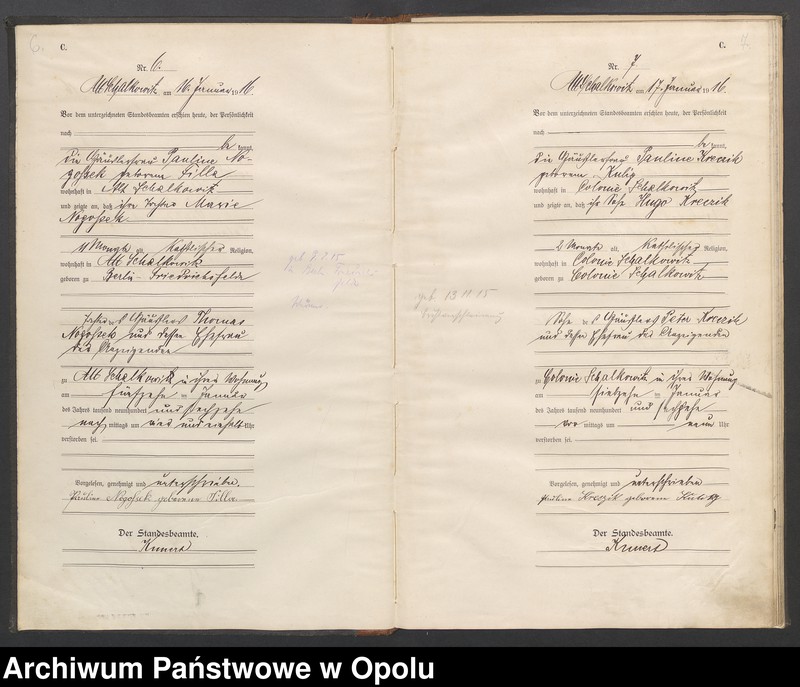 6.
C.
Nr. 6.
Alt Schalkowitz am 16. Januar 1916.
Vor dem unterzeichneten Standesbeamten erschien heute, der Persönlichkeit
nach
be kannt,
die Häuslerfrau Pauline No-
gossek geborene Filla
wohnhaft in Alt Schalkowitz
und zeigte an, daß ihre Tochter Marie
Nogossek
11 Monate alt, Katholischer Religion,
wohnhaft in Alt Schalkowitz
geboren zu Berlin-Friedrichsfelde
Tochter des Häuslers Thomas
Nogossek und dessen Ehefrau
der Anzeigenden
zu Alt Schalkowitz in ihrer Wohnung
am fünfzehn ten Januar
des Jahres tausend neunhundert und sechzehn
nach mittags um Uhr
verstorben sei.
Vorgelesen, genehmigt und unterschrieben.
Pauline Nogossek geborene Filla
Der Standesbeamte.
Kunert
geb.
in Berlin Friedrichs-
felde
C.
7.
Nr. 7.
Alt Schalkowitz am 17. Januar 1916.
Vor dem unterzeichneten Standesbeamten erschien heute, der Persönlichkeit
nach
be kannt,
die Häuslerfrau Pauline Kreczik
geborene Kulig
wohnhaft in Colonie Schalkowitz
und zeigte an, daß ihr Sohn Hugo Kreczik
2 Monate alt, Katholischer Religion,
wohnhaft in Colonie Schalkowitz
geboren zu Colonie Schalkowitz
Sohn des Häuslers Peter Kreczik
und dessen Ehefrau der Anzeigenden
zu Colonie Schalkowitz in ihrer Wohnung
am siebzehn ten Januar
des Jahres tausend neunhundert und sechzehn
vor mittags um neun Uhr
verstorben sei.
Vorgelesen, genehmigt und unterschrieben
Pauline Kreczik geborene
Der Standesbeamte.
Kunert
geb. 13.11.15
Archiwum Państwowe w Opolu